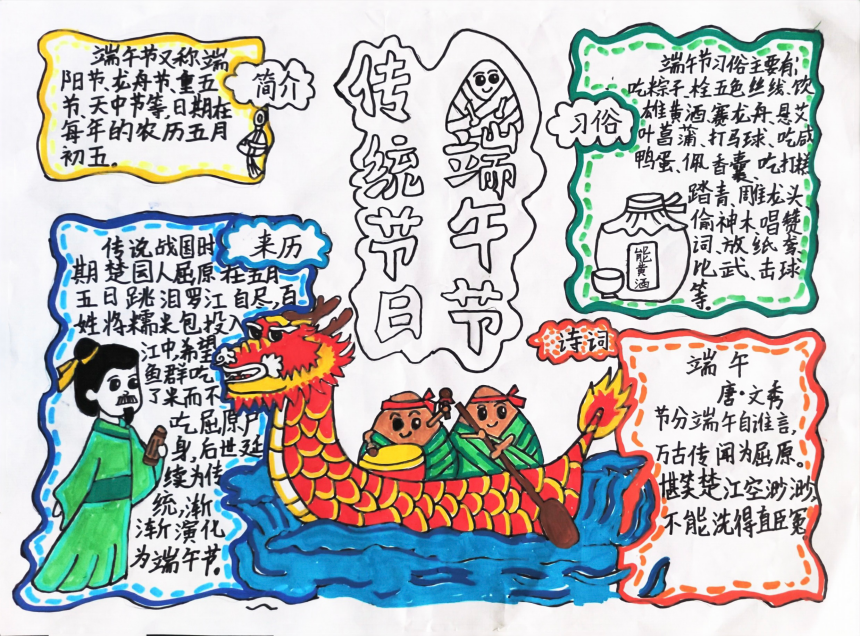 传统节日
端午节
简介
端午节又称端
阳节、龙舟节、重五
节、天中节等,日期在
每年的农历五月
初五。
来历
传说战国时
期楚国人屈原在五月
五日跳汨罗江自尽,百
姓将糯米包投入
江中,希望
鱼群吃
了米而不
吃屈原尸
身,后世延
续为传
统,渐
渐演化
为端午节。
习俗
端午节习俗主要有:
吃粽子、栓五色丝线、饮
雄黄酒、赛龙舟、悬艾
叶菖蒲、打马球、吃咸
鸭蛋、佩香囊、吃打糕
踏青、雕龙头
偷神木唱赞
词、放纸鸢、
比武、击球
等。
黄酒
诗词
端午
唐·文秀
节分端午自谁言,
万古传闻为屈原。
堪笑楚江空渺渺,
不能洗得直臣冤